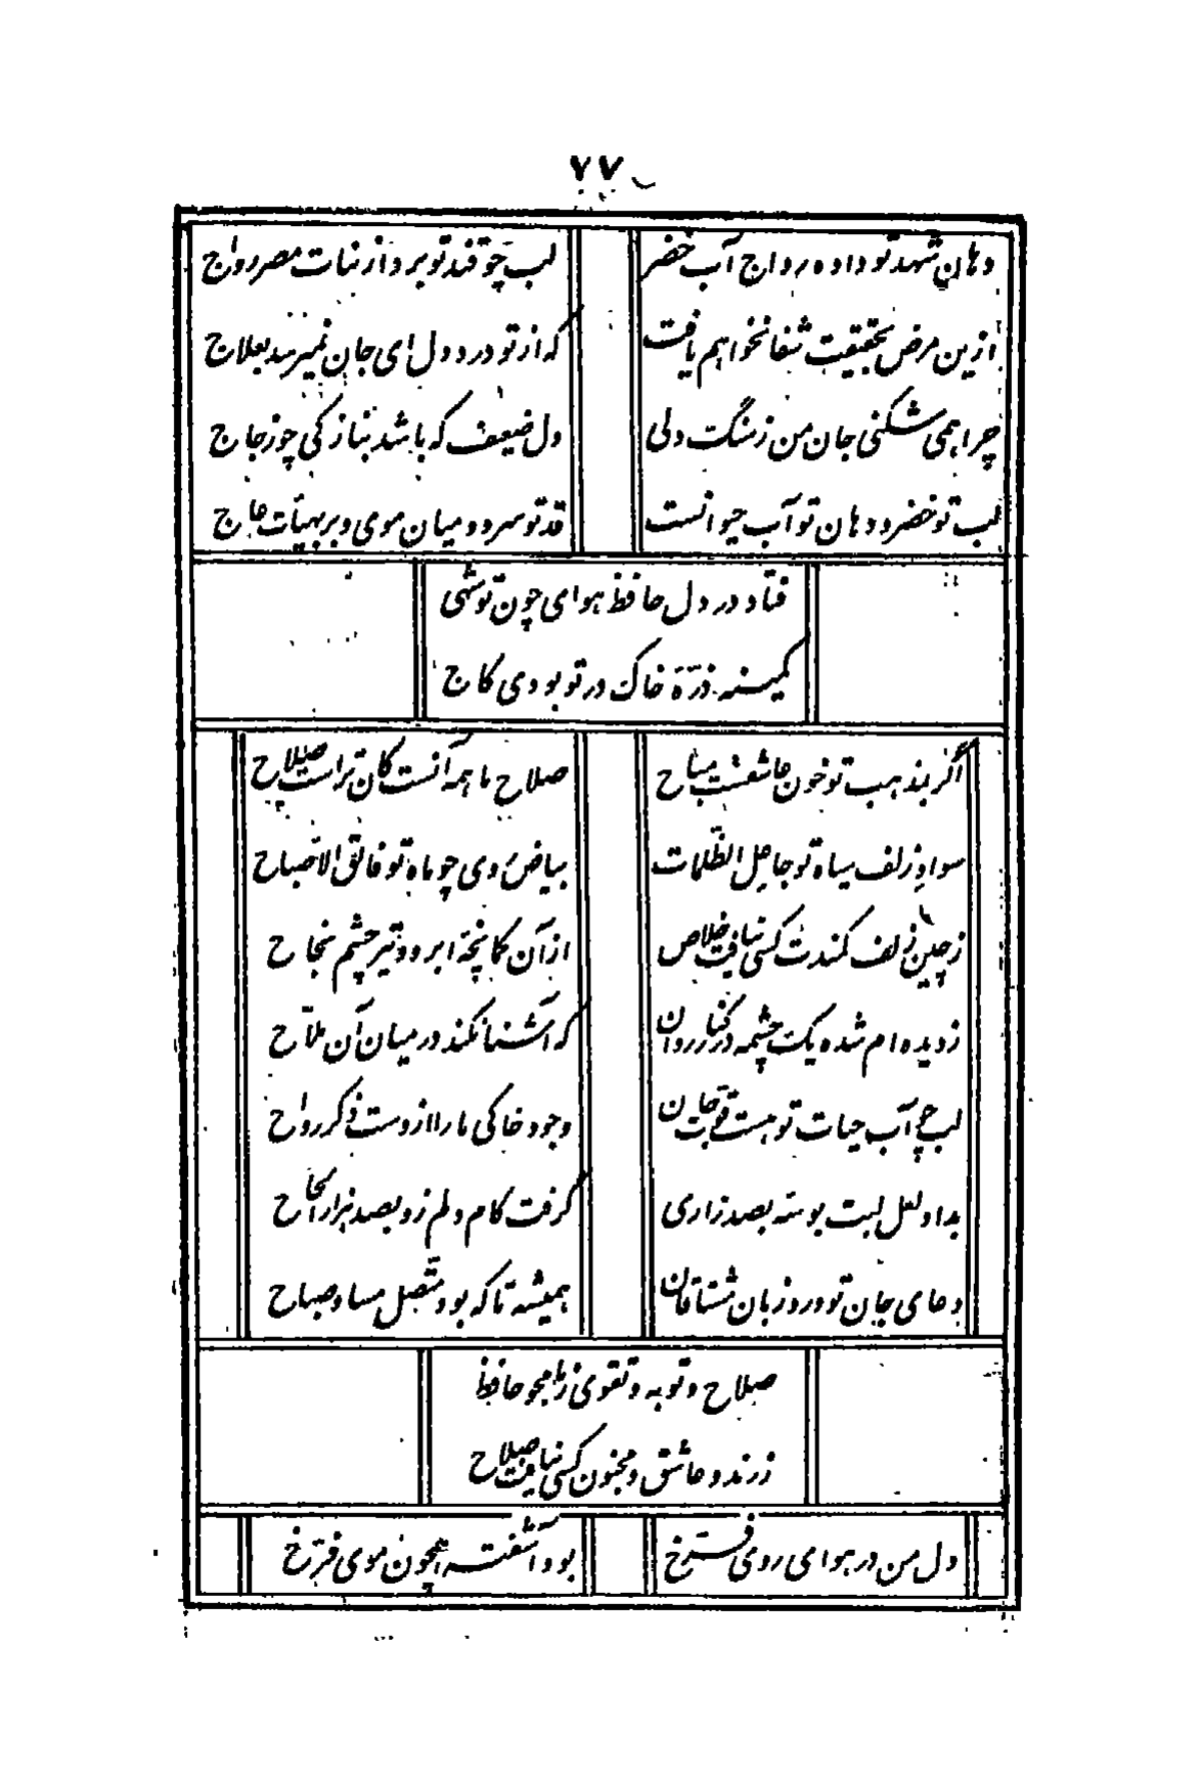 ۷۷
دهان شهد تو داده رواج آب خضر
لب چو قند تو برد از نبات مصر رواج
ازین مرض بحقیقت شفا نخواهم یافت
که از تو درد دل ای جان نمیرسد بعلاج
چرا همی شکنی جان من ز سنگ دلی
دل ضعیف که باشد بنازکی چو زجاج
لب تو خضر و دهان تو آب حیوانست
قد تو سرو و میان موی و بر بهیأت عاج
فتاد در دل حافظ هوای چون تو شهی
کمینه ذرّهٔ خاک در تو بودی کاج
اگر بمذهب تو خون عاشقست مباح
صلاح ما همه آنست کان تراست صلاح
سوادِ زلف سیاه تو جاعل الظّلمات
بیاض روی چو ماه تو فالق الاصباح
ز چین زلف کمندت کسی نیافت خلاص
از آن کمانچهٔ ابرو و تیر چشم نجاح
ز دیده‌ام شده یک چشمه در کنار روان
که آشنا نکند در میان آن ملّاح
لب چو آب حیات تو هست قوّت جان
وجود خاکی ما را ازوست ذکر رواح
بداد لعل لبت بوسهٔ بصد زاری
گرفت کام دلم زو بصد هزار الحاح
دعای جان تو ورد زبان مشتاقان
همیشه تا که بود متّصل مسا و صباح
صلاح و توبه و تقوی ز ما مجو حافظ
ز رند و عاشق و مجنون کسی نیافت صلاح
دل من در هوای روی فرّخ
بود آشفته همچون موی فرّخ